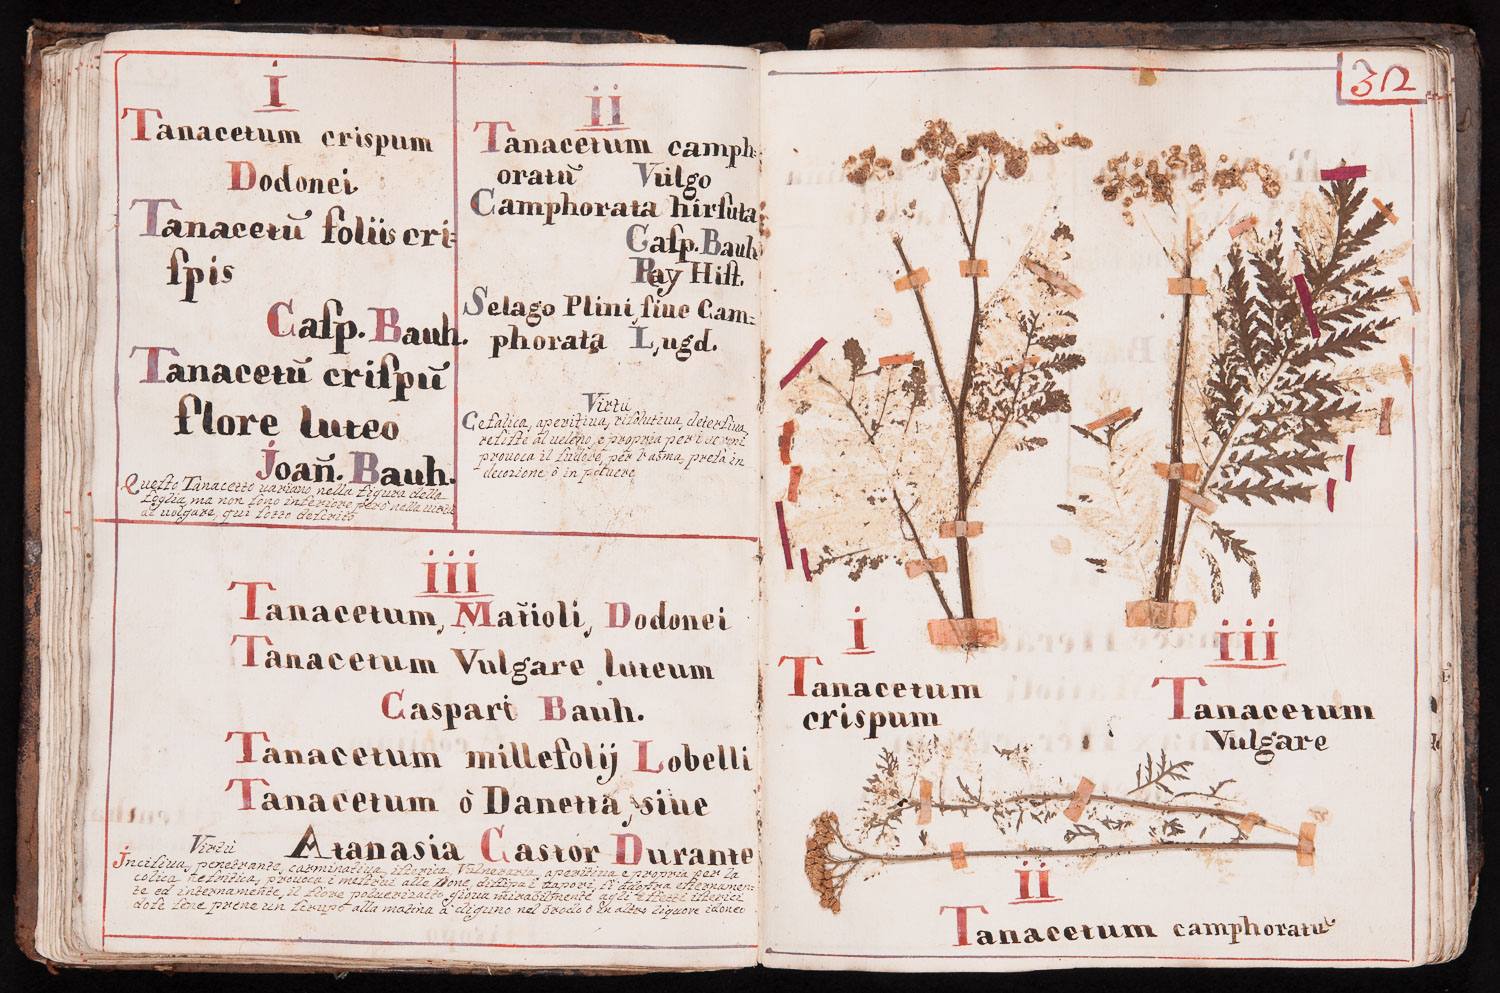 i
Tanacetum crispum
Dodonei
Tanacetũ foliis cri-
spis
Casp. Bauh.
Tanacetũ crispũ
flore luteo
Joañ. Bauh.
Questo Tanaceto uariano nella figura della
foglia, ma non sono inferiore però nelle uirtù
al uolgare, qui sotto descrito
ii
Tanacetum camph-
oratũ Vulgo
Camphorata hirsuta
Casp. Bauh.
Ray Hist.
Selago Plini siue Cam=
phorata Lugd.
Virtù
Cefalica, aperitiua, risolutiua, detersiua,
resiste al ueleno, e propria per i uermi
prouoca il sudore, per l'asma, presa in
decozione ò in poluere
iii
Tanacetum, Matioli, Dodonei
Tanacetum Vulgare luteum
Caspari Bauh.
Tanacetum millefolij Lobelli
Tanacetum ò Danetta, siue
Atanasia Castor Durante
Virtù
Incisiua, penetrante, carminatiua, isterica, Vulneraria, aperitiua e propria per la
colica nefritica, prouoca i mestrui alle Done, dissipa i uapori, si adopra esternamen-
te ed internamente, il fiore poluerizatto gioua mirabilmente agli effetti isterici
dosi sene prene un scrupº alla matina à digiuno nel brodo ò in altro liquore idoneo
312
i
Tanacetum
crispum
iii
Tanacetum
Vulgare
ii
Tanacetum camphoratũ